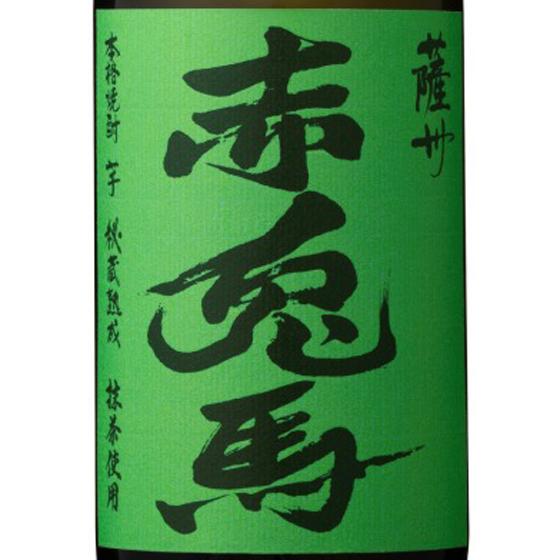 薩州
赤兎馬
本格焼酎 芋 秘蔵熟成 抹茶使用